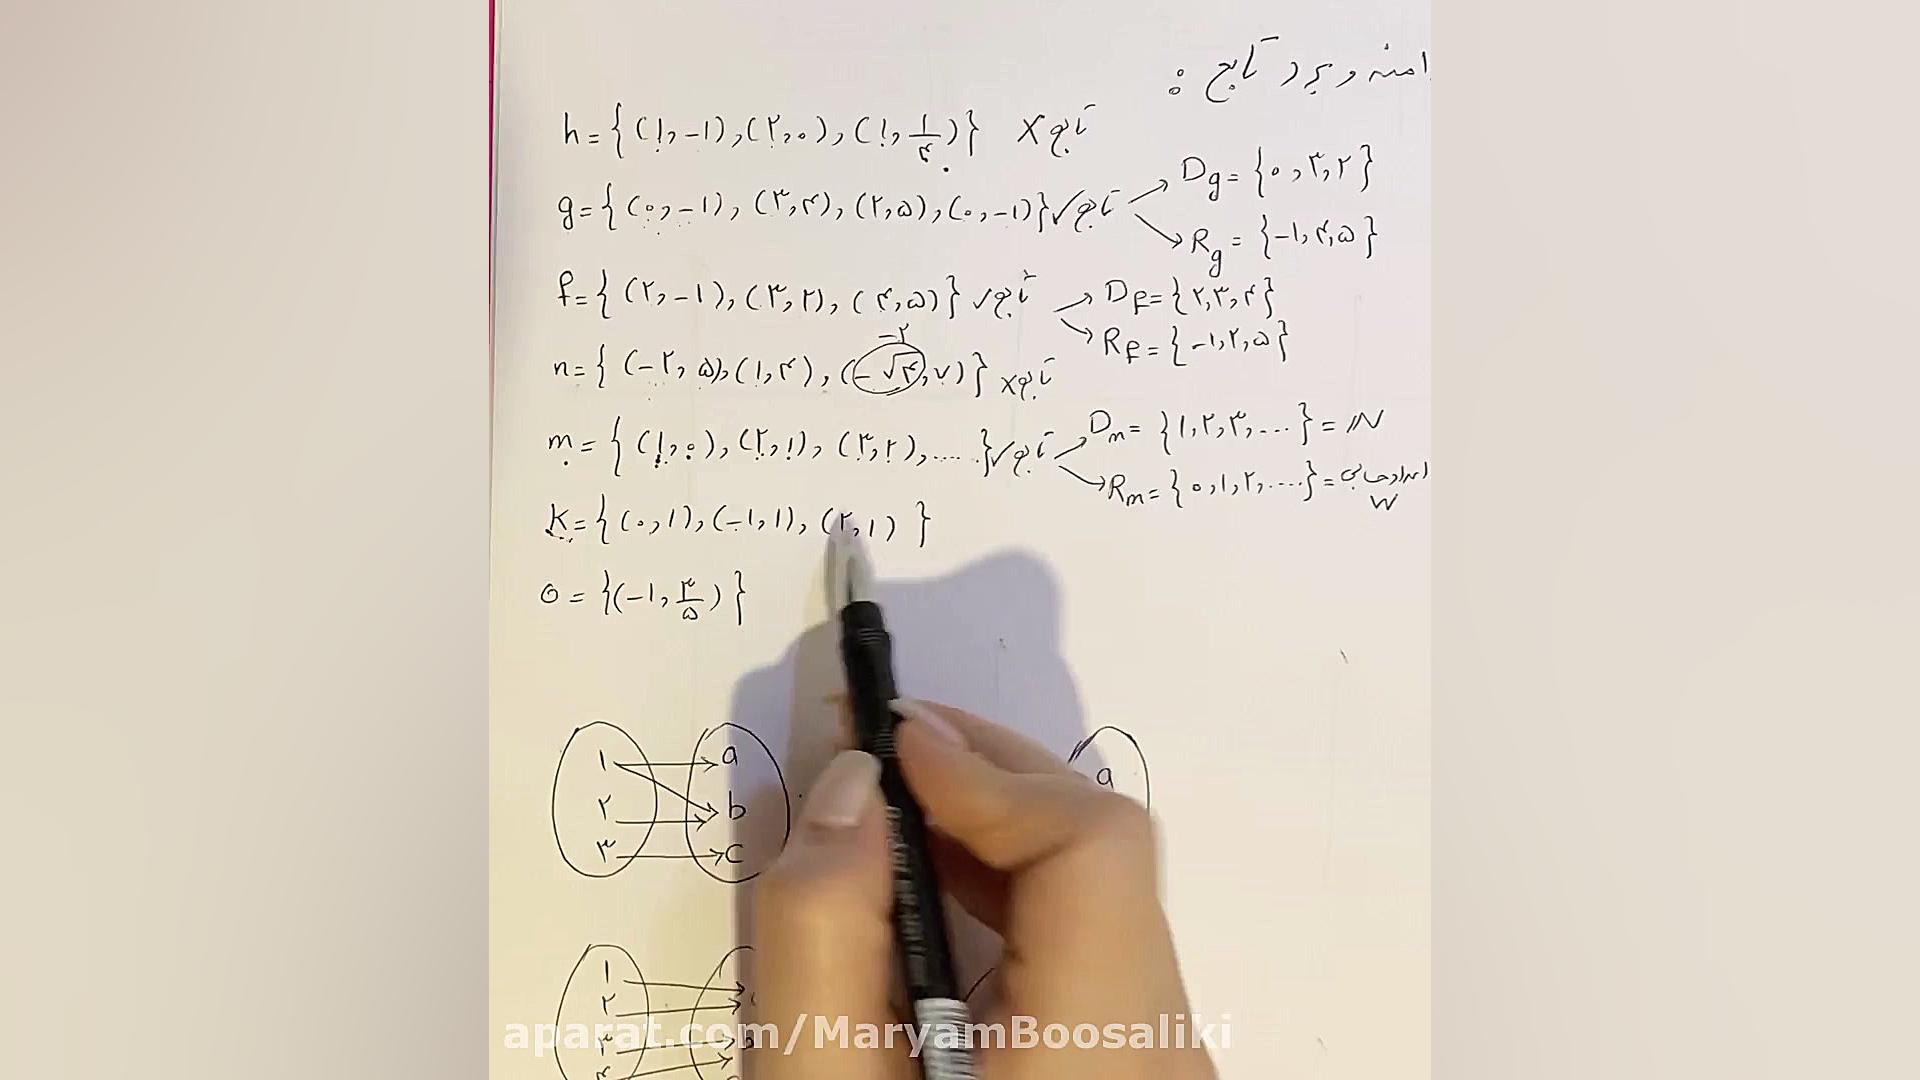 دامنه و برد تابع :
h = {(۱, -۱), (۲, ۰), (۱, ۱/۴)} تابع ×
g = {(۰, -۱), (۳, ۴), (۲, ۵), (۰, -۱)} تابع ✓
D_g = {۰, ۳, ۲}
R_g = {-۱, ۴, ۵}
f = {(۲, -۱), (۳, ۲), (۴, ۵)} تابع ✓
D_f = {۲, ۳, ۴}
R_f = {-۱, ۲, ۵}
-۲
n = {(-۲, ۵), (۱, ۴), (-√۴, ۷)} تابع ×
m = {(۱, ۰), (۲, ۱), (۳, ۲), ....} تابع ✓
D_m = {۱, ۲, ۳, ...} = ℕ
R_m = {۰, ۱, ۲, ....} = اعداد حسابی
W
K = {(۰, ۱), (-۱, ۱), (۲, ۱)}
o = {(-۱, ۳/۵)}
۱ a
۲ b
۳ c
a
۱
۲
۳ b
۴
aparat.com/MaryamBoosaliki